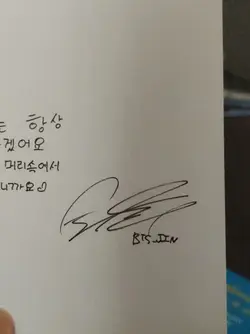 는 항상
겠어요
머리속에서
니까요
BTS JIN